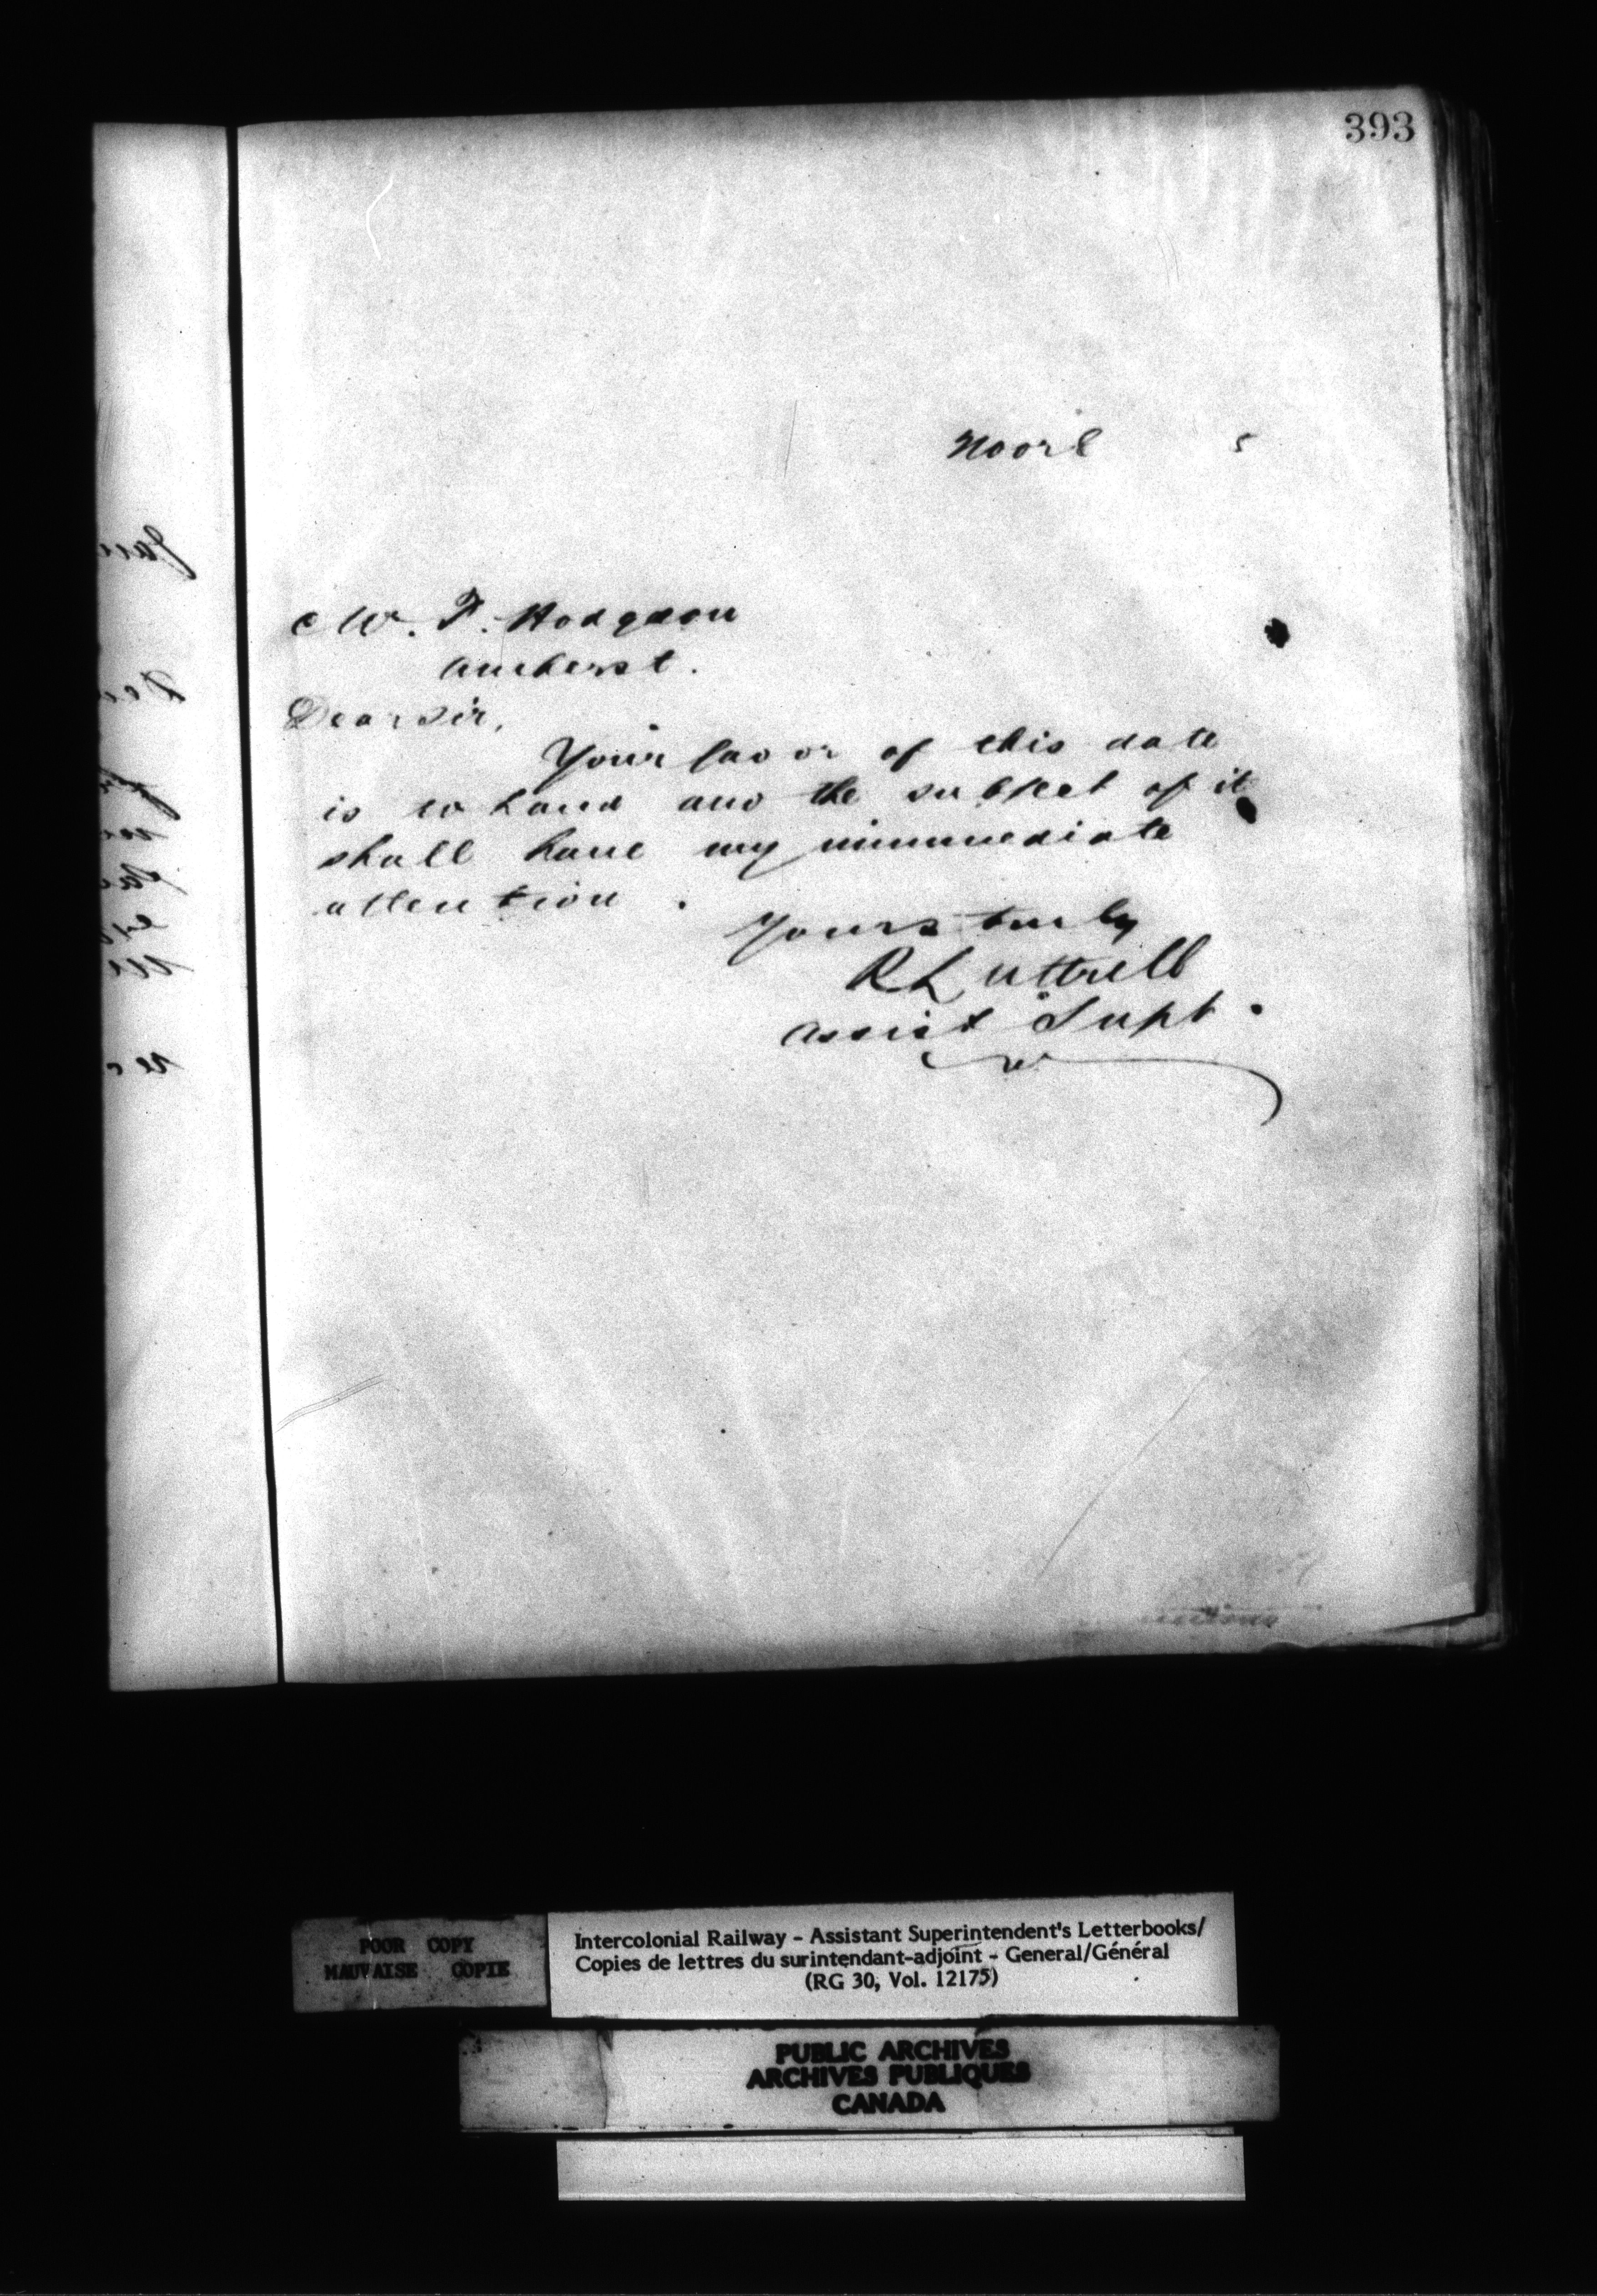 393
5
C W. F. Hodgson
Amherst.
Dear Sir,
Your favor of this date
is to hand and the subject of it
shall have my immediate
attention.
Yours truly
R Luttrell
Assist Supt.
POOR COPY
MAUVAISE COPIE
Intercolonial Railway - Assistant Superintendent's Letterbooks/
Copies de lettres du surintendant-adjoint - General/Général
(RG 30, Vol. 12175)
PUBLIC ARCHIVES
ARCHIVES PUBLIQUES
CANADA